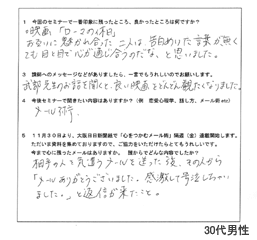 1 今回のセミナーで一番印象に残ったところ、良かったところは何ですか?
映画「ローマの休日」
お互いに魅かれ合った二人は告白めいた言葉が無く
ても目と目で心が通じ合うのだな、と思いました。
3 講師へのメッセージなどがありましたら、一言でもうれしいのでお願いします。
武部先生のお話を聞くと、良い映画をどんどん観たくなりました。
4 今後セミナーで聞きたい内容はありますか?(例 恋愛心理学、話し方、メール術 etc)
メール術
5 11月30日より、大阪日日新聞紙で「心をつかむメール術」隔週(金)連載開始します。
ただいま資料を集めておりますので、ご協力をいただけたらとてもうれしいです。
今まで心に残ったメールはありますか。誰からでどんな内容でしたか?
相手の人を気遣うメールを送った後、その人から
「メールありがとうございました。感激して号泣しちゃい
ました。」と返信が来たこと。
30代男性